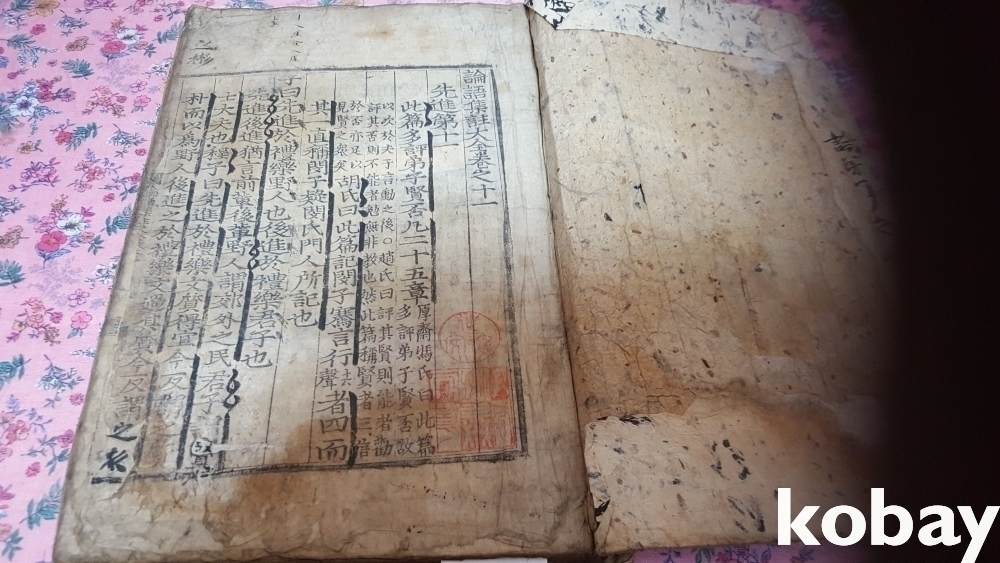 論語集註大全卷之十一
先進第十一
此篇多評弟子賢否凡二十五章 厚齋馮氏曰此篇
多評弟子賢否故
以次於夫子言動之後○趙氏曰評其賢則能者勸
評其否則不能者勉無非敎也然此篇稱賢者三倍
於否亦足以
見賢之衆矣 胡氏曰此篇記閔子騫言行者四而
其一直稱閔子疑閔氏門人所記也
子曰先進於禮樂野人也後進於禮樂君子也
先進後進猶言前輩後輩野人謂郊外之民君子
士大夫也程子曰先進於禮樂文質得宜今反謂
朴而以爲野人後進之於禮樂文過其質今反謂
之彬
之
kobay